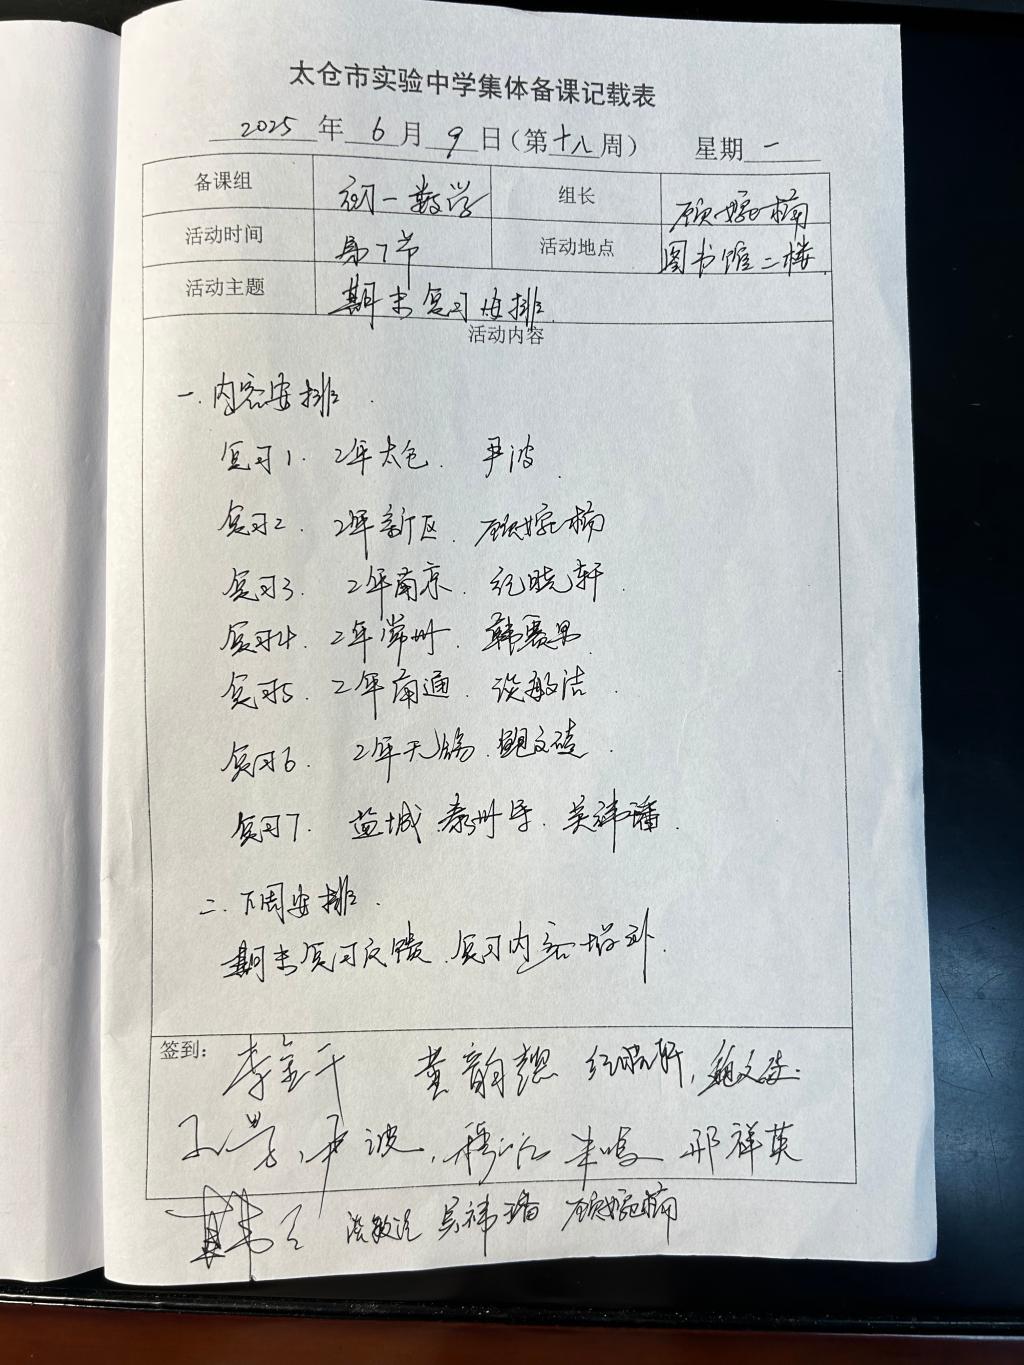 太仓市实验中学集体备课记载表
2025 年 6 月 9 日(第十八周) 星期一
备课组 初一数学 组长 顾婷楠
活动时间 第7节 活动地点 图书馆二楼
活动主题 期末复习安排
活动内容
一.内容安排.
复习1. 2年太仓. 尹波.
复习2. 2年新区. 顾婷楠
复习3. 2年南京. 纪晓轩.
复习4. 2年常州. 韩
复习5. 2年南通. 谈敏洁.
复习6. 2年无锡. 鲍文
复习7. 盐城.泰州等. 吴祎璠.
二.下周安排.
期末复习反馈.复习内容增补.
签到: 李 黄韵 纪晓轩, 鲍文
尹波, 邢祥英
韩 谈敏洁 吴祎璠 顾婷楠